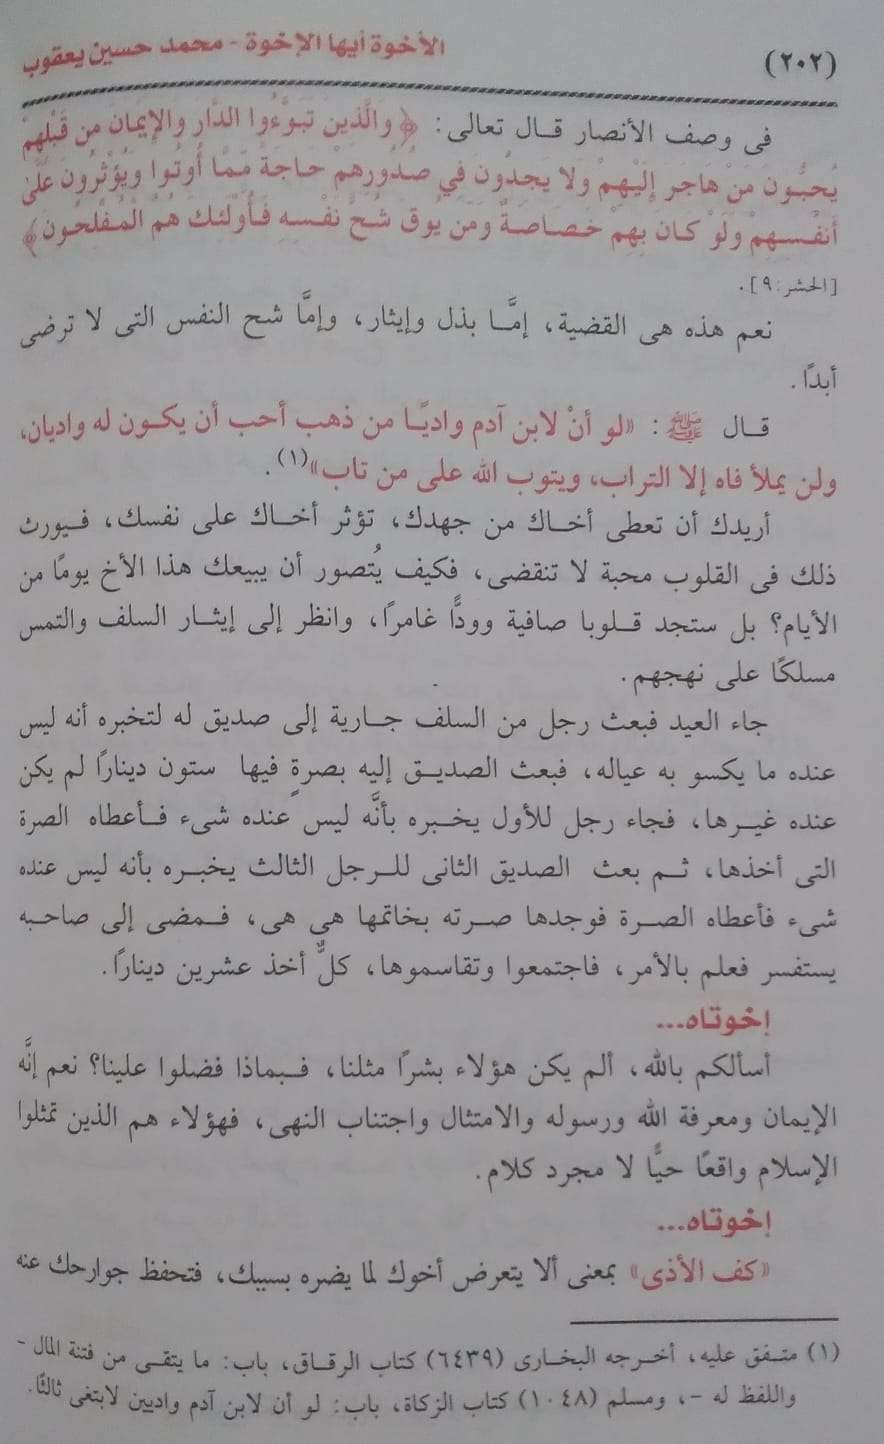 (٢٠٢) الأخوة أيها الإخوة - محمد حسين يعقوب
فى وصف الأنصار قال تعالى: ﴿وَالَّذِينَ تَبَوَّءُوا الدَّارَ وَالإِيمَانَ مِن قَبْلِهِمْ
يُحِبُّونَ مَنْ هَاجَرَ إِلَيْهِمْ وَلا يَجِدُونَ فِي صُدُورِهِمْ حَاجَةً مِّمَّا أُوتُوا وَيُؤْثِرُونَ عَلَىٰ
أَنفُسِهِمْ وَلَوْ كَانَ بِهِمْ خَصَاصَةٌ وَمَن يُوقَ شُحَّ نَفْسِهِ فَأُوْلَئِكَ هُمُ الْمُفْلِحُونَ﴾
[الحشر:٩].
نعم هذه هى القضية، إمَّا بذل وإيثار، وإمَّا شح النفس التى لا ترضى
أبدًا.
قال ﷺ: «لو أنْ لابن آدم واديًا من ذهب أحب أن يكون له واديان،
ولن يملأ فاه إلا التراب، ويتوب الله على من تاب»(١).
أريدك أن تعطى أخاك من جهدك، تؤثر أخاك على نفسك، فيورث
ذلك فى القلوب محبة لا تنقضى، فكيف يُتصور أن يبيعك هذا الأخ يومًا من
الأيام؟ بل ستجد قلوبا صافية وودًّا غامرًا، وانظر إلى إيثار السلف والتمس
مسلكًا على نهجهم.
جاء العيد فبعث رجل من السلف جارية إلى صديق له لتخبره أنه ليس
عنده ما يكسو به عياله، فبعث الصديق إليه بصرةٍ فيها ستون دينارًا لم يكن
عنده غيرها، فجاء رجل للأول يخبره بأنَّه ليس عنده شىء فأعطاه الصرة
التى أخذها، ثم بعث الصديق الثانى للرجل الثالث يخبره بأنه ليس عنده
شىء فأعطاه الصرة فوجدها صرته بخاتمها هى هى، فمضى إلى صاحبه
يستفسر فعلم بالأمر، فاجتمعوا وتقاسموها، كلٌّ أخذ عشرين دينارًا.
إخوتاه...
أسألكم بالله، ألم يكن هؤلاء بشرًا مثلنا، فبماذا فضلوا علينا؟ نعم إنَّه
الإيمان ومعرفة الله ورسوله والامتثال واجتناب النهى، فهؤلاء هم الذين تمثلوا
الإسلام واقعًا حيًّا لا مجرد كلام.
إخوتاه...
«كف الأذى» بمعنى ألا يتعرض أخوك لما يضره بسببك، فتحفظ جوارحك عنه
(١) متفق عليه، أخرجه البخارى (٦٤٣٩) كتاب الرقاق، باب: ما يتقى من فتنة المال -
واللفظ له -، ومسلم (١٠٤٨) كتاب الزكاة، باب: لو أن لابن آدم واديين لابتغى ثالثًا.